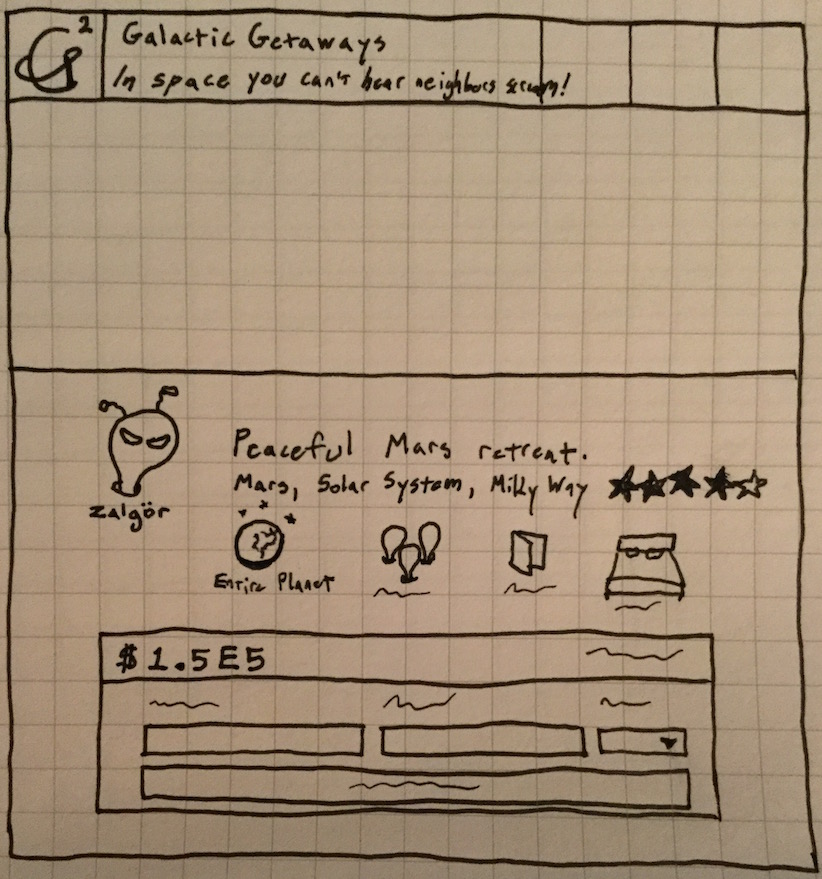 G²
Galactic Getaways
In space you can't hear neighbors scream!
Peaceful Mars retreat.
Mars, Solar System, Milky Way
Zalgör
Entire Planet
$1.5E5